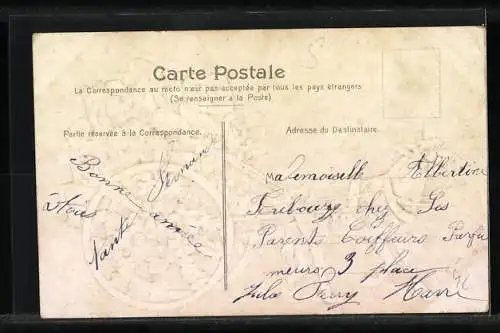 Carte Postale
La Correspondance au recto n'est pas acceptée par tous les pays étrangers
(Se renseigner à la Poste)
Partie réservée à la Correspondance.
Bonne année
à tous
Santé
Adresse du Destinataire.
Mademoiselle Albertine
Fribourg chez Ses
Parents Coiffeurs Parfu
meurs 3 place
Jules Ferry